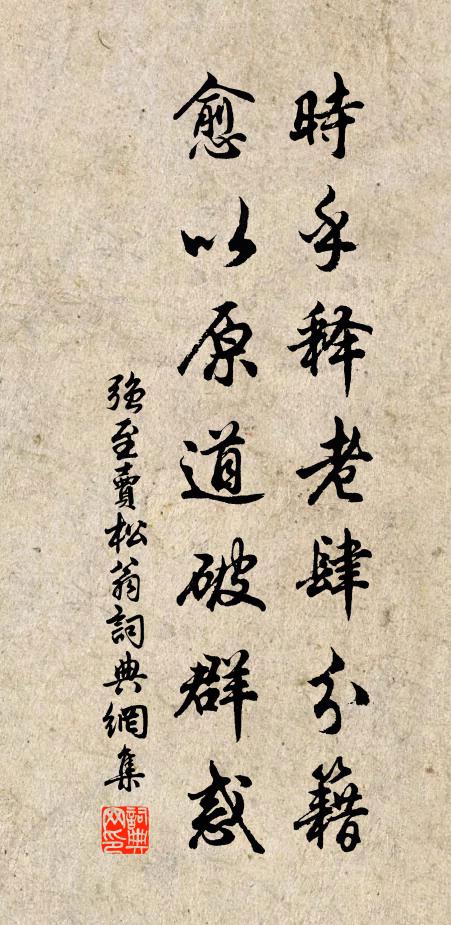 時乎釋老肆分籍
愈以原道破群惑
強至賣松翁詞典網集
詞典网印